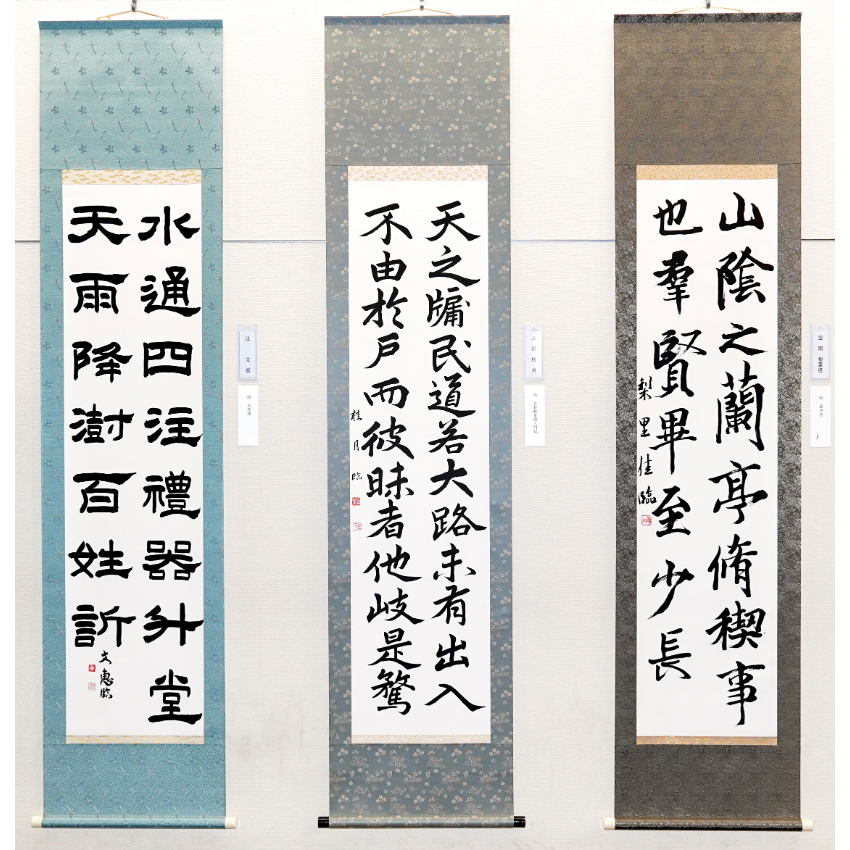 山陰之蘭亭脩稧事
也羣賢畢至少長
梨里佳臨
天之牖民道若大路未有出入
不由於戶而彼昧者他岐是騖
桂月臨
水通四注禮器升堂
天雨降澍百姓訢
文惠臨